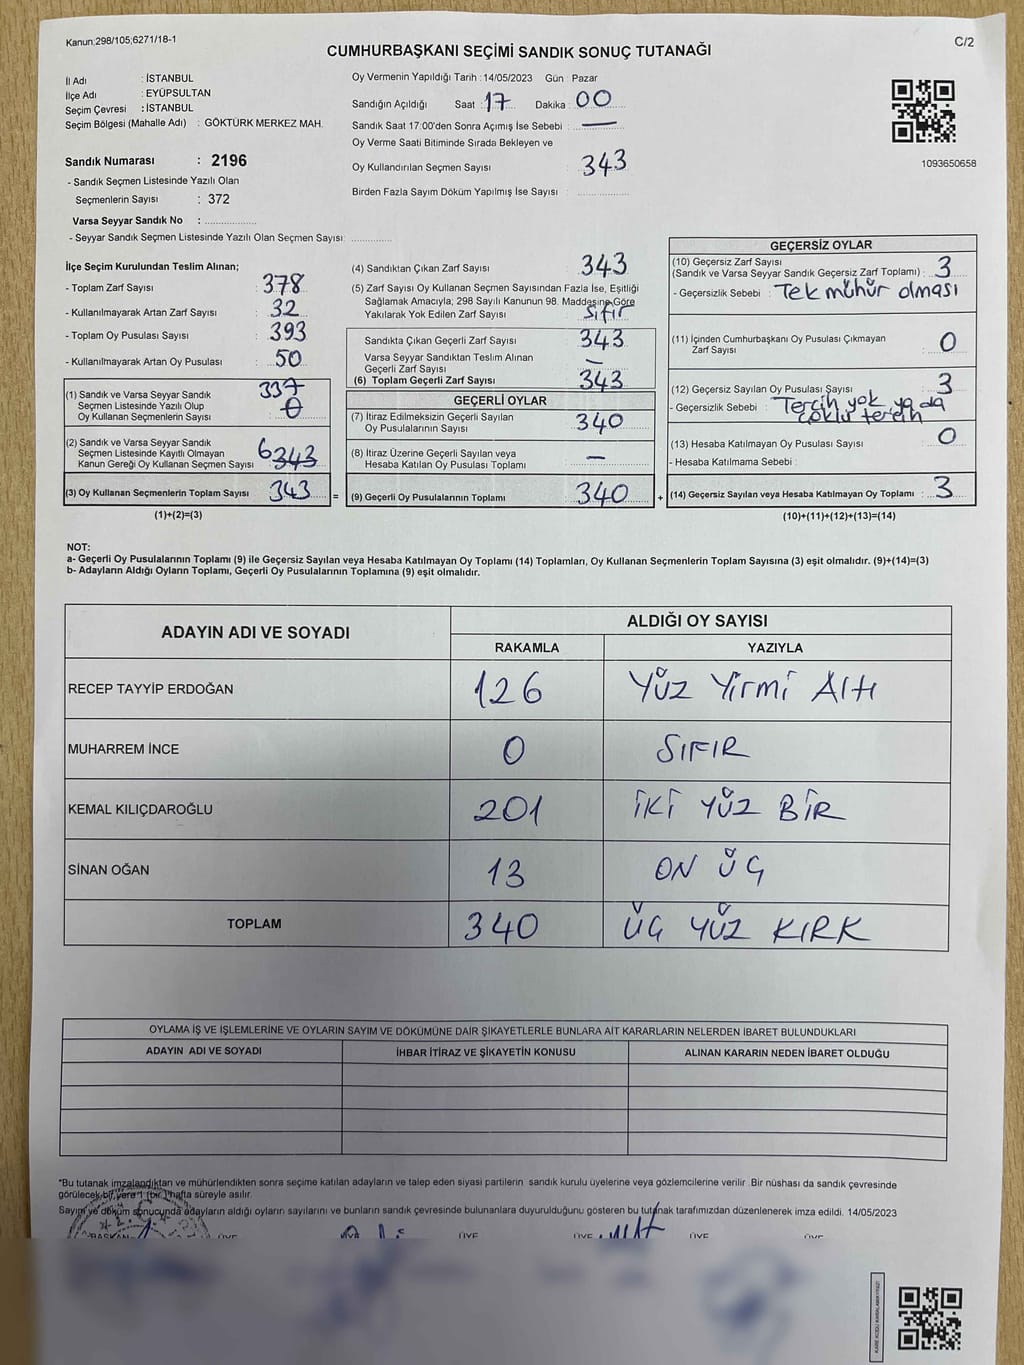 Kanun;298/105;6271/18-1
C/2
CUMHURBAŞKANI SEÇİMİ SANDIK SONUÇ TUTANAĞI
İl Adı : İSTANBUL
İlçe Adı : EYÜPSULTAN
Seçim Çevresi : İSTANBUL
Seçim Bölgesi (Mahalle Adı) : GÖKTÜRK MERKEZ MAH.
Sandık Numarası : 2196
- Sandık Seçmen Listesinde Yazılı Olan
Seçmenlerin Sayısı : 372
Varsa Seyyar Sandık No :
- Seyyar Sandık Seçmen Listesinde Yazılı Olan Seçmen Sayısı:
Oy Vermenin Yapıldığı Tarih : 14/05/2023 Gün : Pazar
Sandığın Açıldığı Saat : 17 Dakika : 00
Sandık Saat 17:00'den Sonra Açımış İse Sebebi : —
Oy Verme Saati Bitiminde Sırada Bekleyen ve
Oy Kullandırılan Seçmen Sayısı : 343
Birden Fazla Sayım Döküm Yapılmış İse Sayısı :
1093650658
İlçe Seçim Kurulundan Teslim Alınan;
- Toplam Zarf Sayısı : 378
- Kullanılmayarak Artan Zarf Sayısı : 32
- Toplam Oy Pusulası Sayısı : 393
- Kullanılmayarak Artan Oy Pusulası : 50
(1) Sandık ve Varsa Seyyar Sandık 337
Seçmen Listesinde Yazılı Olup
Oy Kullanan Seçmenlerin Sayısı : 0
(2) Sandık ve Varsa Seyyar Sandık
Seçmen Listesinde Kayıtlı Olmayan
Kanun Gereği Oy Kullanan Seçmen Sayısı : 6 343
(3) Oy Kullanan Seçmenlerin Toplam Sayısı : 343
(1)+(2)=(3)
=
(4) Sandıktan Çıkan Zarf Sayısı : 343
(5) Zarf Sayısı Oy Kullanan Seçmen Sayısından Fazla İse, Eşitliği
Sağlamak Amacıyla; 298 Sayılı Kanunun 98. Maddesine Göre
Yakılarak Yok Edilen Zarf Sayısı : sıfır
Sandıkta Çıkan Geçerli Zarf Sayısı : 343
Varsa Seyyar Sandıktan Teslim Alınan
Geçerli Zarf Sayısı : —
(6) Toplam Geçerli Zarf Sayısı : 343
GEÇERLİ OYLAR
(7) İtiraz Edilmeksizin Geçerli Sayılan
Oy Pusulalarının Sayısı : 340
(8) İtiraz Üzerine Geçerli Sayılan veya
Hesaba Katılan Oy Pusulası Toplamı : —
(9) Geçerli Oy Pusulalarının Toplamı : 340
+
GEÇERSİZ OYLAR
(10) Geçersiz Zarf Sayısı
(Sandık ve Varsa Seyyar Sandık Geçersiz Zarf Toplamı) : 3
- Geçersizlik Sebebi : Tek mühür olması
(11) İçinden Cumhurbaşkanı Oy Pusulası Çıkmayan
Zarf Sayısı : 0
(12) Geçersiz Sayılan Oy Pusulası Sayısı : 3
- Geçersizlik Sebebi : Tercih yok ya da
çoklu tercih
(13) Hesaba Katılmayan Oy Pusulası Sayısı : 0
- Hesaba Katılmama Sebebi :
(14) Geçersiz Sayılan veya Hesaba Katılmayan Oy Toplamı : 3
(10)+(11)+(12)+(13)=(14)
NOT:
a- Geçerli Oy Pusulalarının Toplamı (9) ile Geçersiz Sayılan veya Hesaba Katılmayan Oy Toplamı (14) Toplamları, Oy Kullanan Seçmenlerin Toplam Sayısına (3) eşit olmalıdır. (9)+(14)=(3)
b- Adayların Aldığı Oyların Toplamı, Geçerli Oy Pusulalarının Toplamına (9) eşit olmalıdır.
ADAYIN ADI VE SOYADI
ALDIĞI OY SAYISI
RAKAMLA YAZIYLA
RECEP TAYYİP ERDOĞAN 126 Yüz Yirmi Altı
MUHARREM İNCE 0 SIFIR
KEMAL KILIÇDAROĞLU 201 İKİ YÜZ BİR
SİNAN OĞAN 13 ON ÜÇ
TOPLAM 340 ÜÇ YÜZ KIRK
OYLAMA İŞ VE İŞLEMLERİNE VE OYLARIN SAYIM VE DÖKÜMÜNE DAİR ŞİKAYETLERLE BUNLARA AİT KARARLARIN NELERDEN İBARET BULUNDUKLARI
ADAYIN ADI VE SOYADI İHBAR İTİRAZ VE ŞİKAYETİN KONUSU ALINAN KARARIN NEDEN İBARET OLDUĞU
*Bu tutanak imzalandıktan ve mühürlendikten sonra seçime katılan adayların ve talep eden siyasi partilerin sandık kurulu üyelerine veya gözlemcilerine verilir .Bir nüshası da sandık çevresinde
görülecek bir yere 1 (bir ) hafta süreyle asılır.
Sayım ve döküm sonucunda adayların aldığı oyların sayılarını ve bunların sandık çevresinde bulunanlara duyurulduğunu gösteren bu tutanak tarafımızdan düzenlenerek imza edildi. 14/05/2023
BAŞKAN ÜYE ÜYE ÜYE ÜYE ÜYE ÜYE